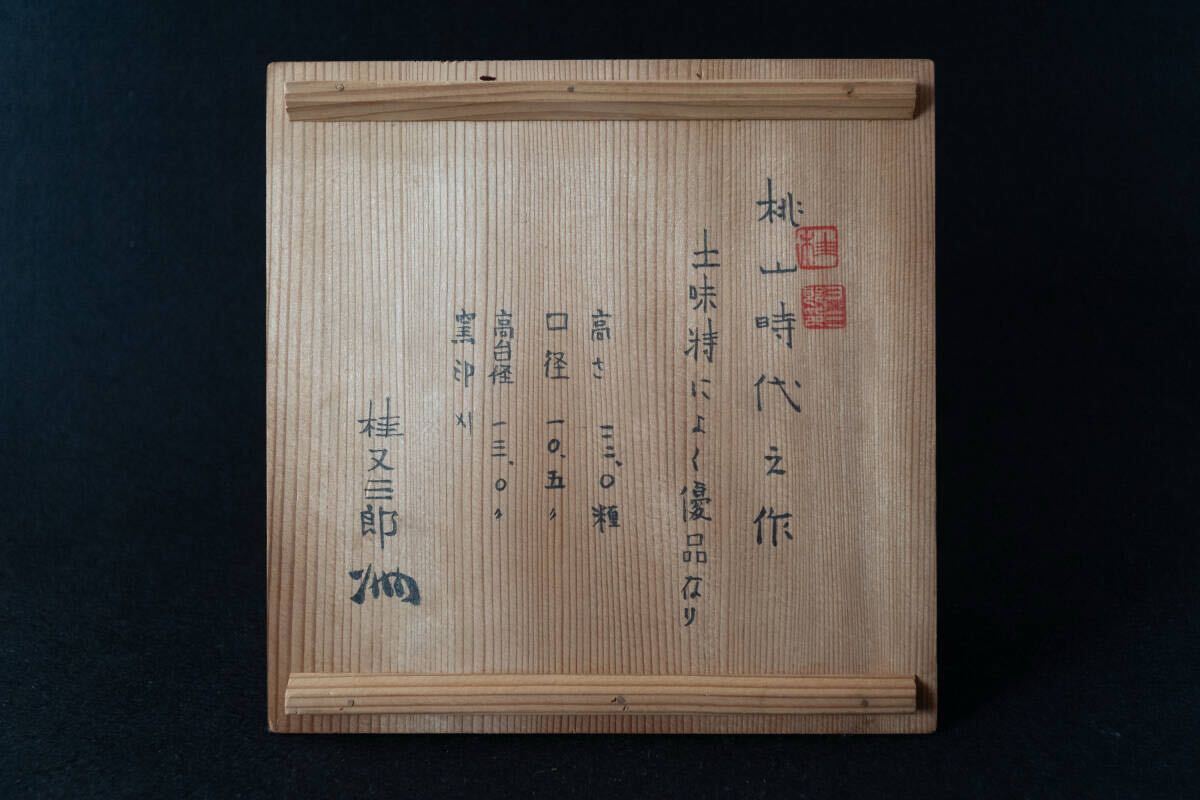 桃山時代之作
土味特によく優品なり
高さ 二三、〇糎
口径 一〇、五〃
高台径 一三、〇〃
窯印
桂又三郎
桂